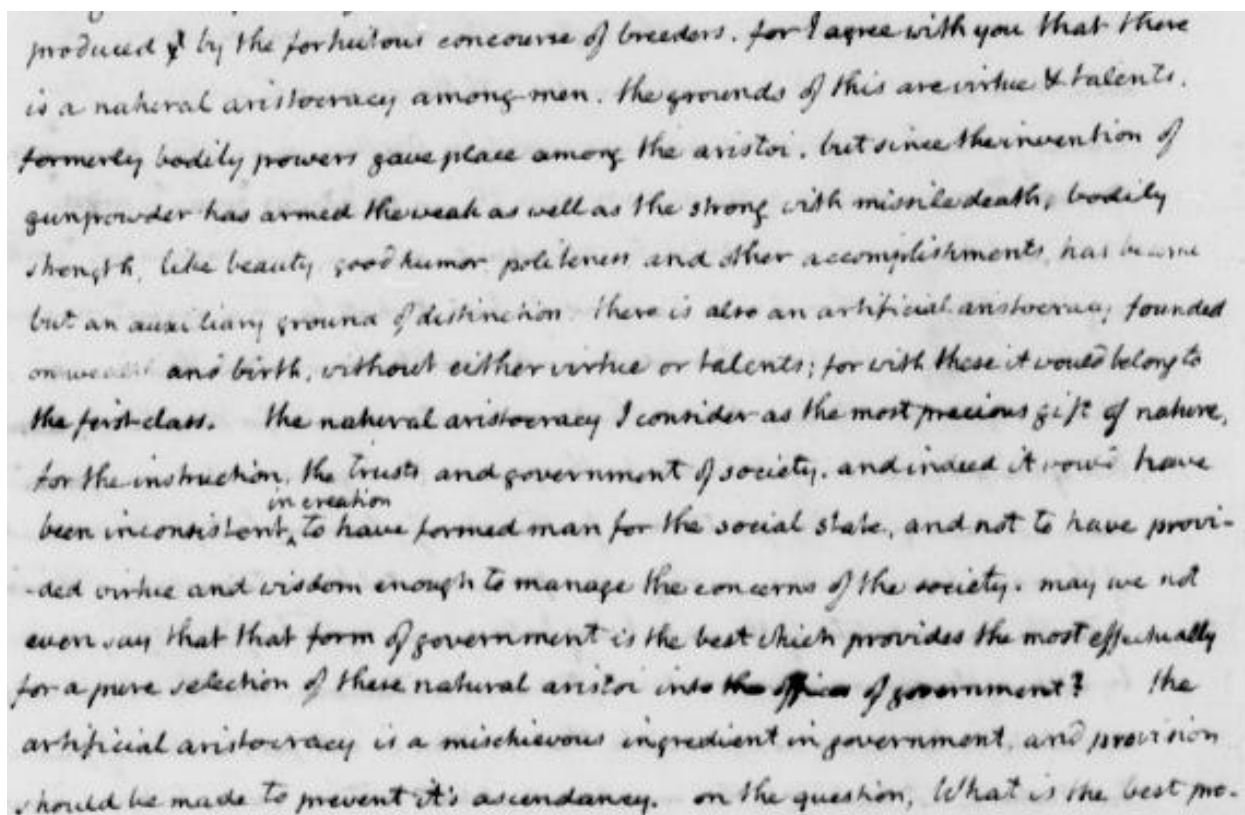 produced by the fortuitous concourse of breeders. for I agree with you that there
is a natural aristocracy among men. the grounds of this are virtue & talents.
formerly bodily powers gave place among the aristoi. but since the invention of
gunpowder has armed the weak as well as the strong with missile death, bodily
strength, like beauty, good humor, politeness and other accomplishments, has become
but an auxiliary ground of distinction. there is also an artificial aristocracy founded
on wealth and birth, without either virtue or talents; for with these it would belong to
the first class. the natural aristocracy I consider as the most precious gift of nature,
for the instruction, the trusts, and government of society. and indeed it would have
in creation
been inconsistent ‸ to have formed man for the social state, and not to have provi-
-ded virtue and wisdom enough to manage the concerns of the society. may we not
even say that that form of government is the best which provides the most effectually
for a pure selection of these natural aristoi into the offices of government? the
artificial aristocracy is a mischievous ingredient in government, and provision
should be made to prevent it's ascendancy. on the question, What is the best pro-